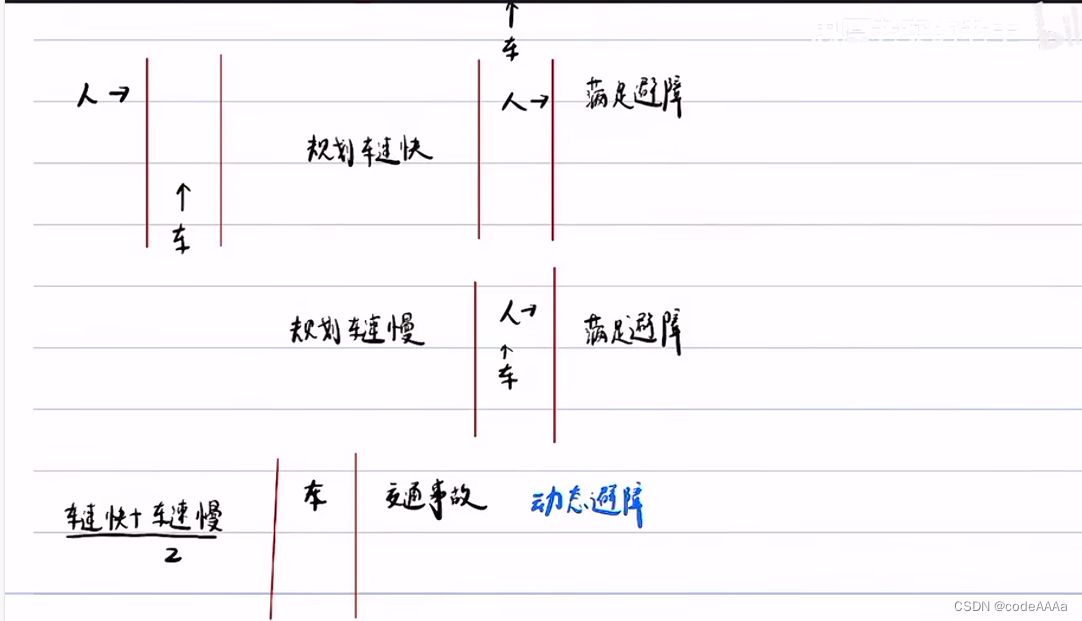 ↑
车
人 →
人 →
满足避障
规划车速快
↑
车
人 →
规划车速慢
满足避障
↑
车
车速快+车速慢
2
车
交通事故
动态避障
CSDN @codeAAAa